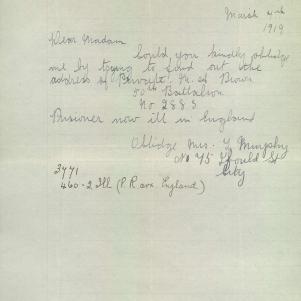 March 4th
1919
Dear Madam
Could you kindly oblidge
me by trying to find out the
address of Private. M. of Brown
50th Battalion
No 2883
Prisoner now ill in England
Oblidge Mrs. L Murphy
No 75 St
City
3771
460-2 Ill (P.R. England)